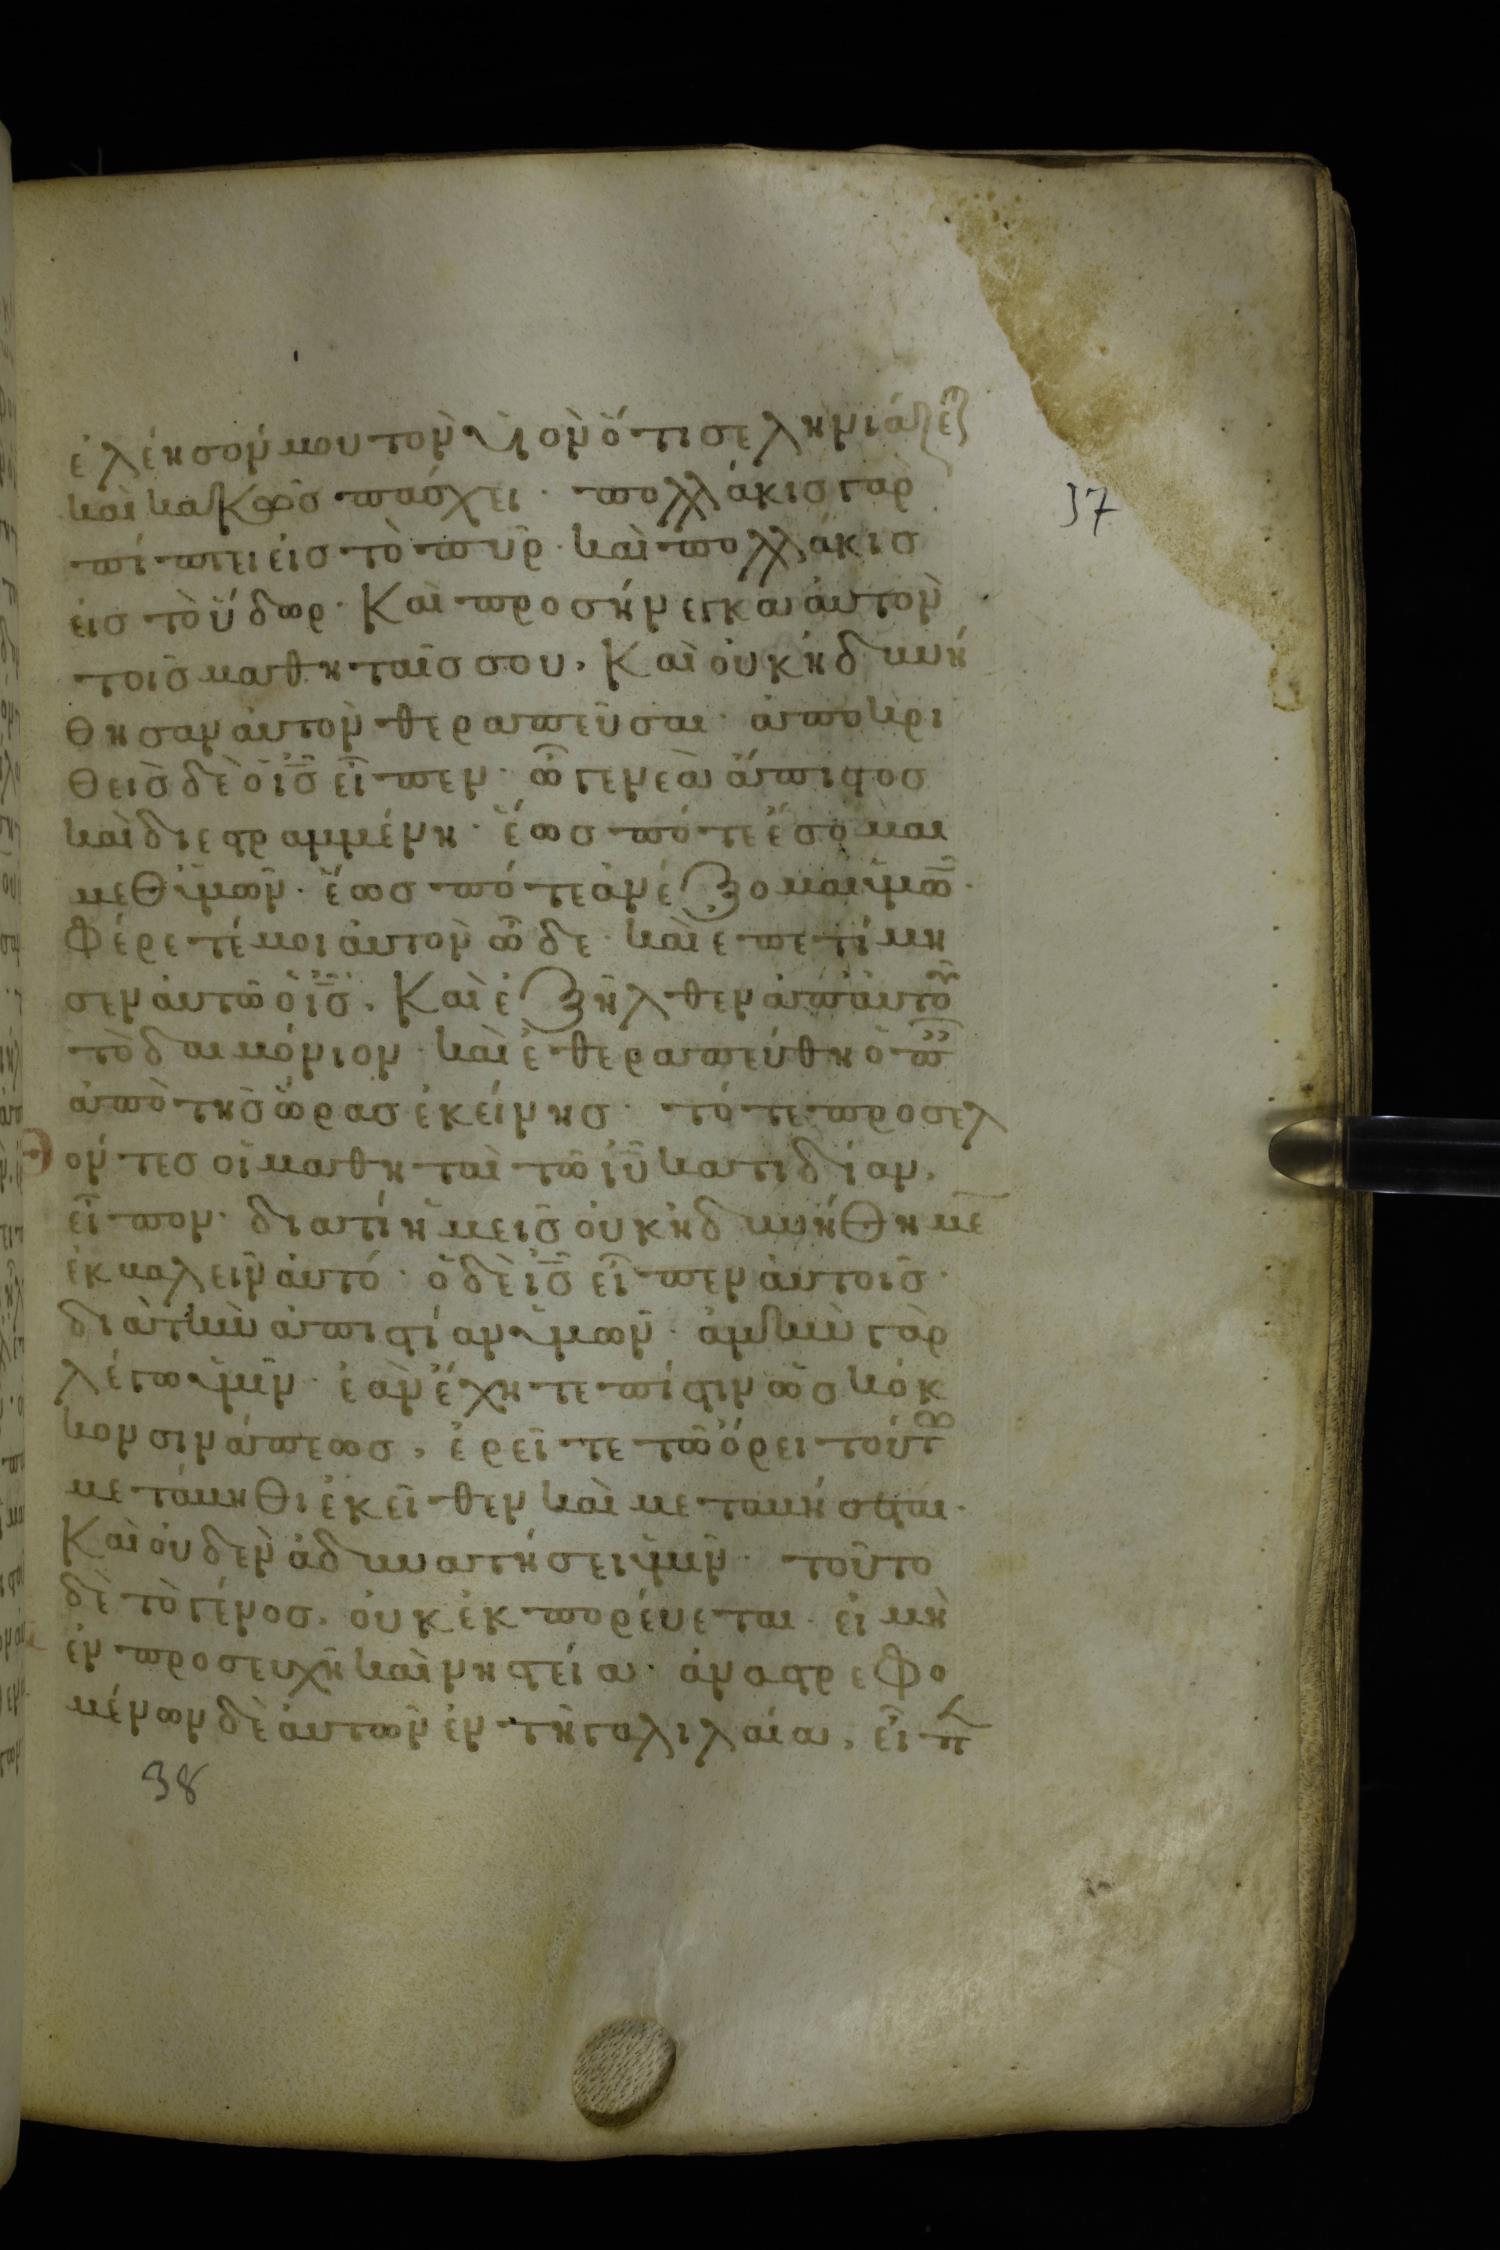 ἐλέησόν μου τὸν υἱὸν ὅτι σεληνιάζετ
καὶ κακῶς πάσχει· πολλάκις γὰρ
37
πίπτει εἰς τὸ πῦρ· καὶ πολλάκις
εἰς τὸ ὕδωρ· Καὶ προσήνεικα αὐτὸν
τοῖς μαθηταῖς σου, Καὶ οὐκ ἠδυνή
θησαν αὐτὸν θεραπεῦσαι· ἀποκρι
θεὶς δὲ ὁ ἰς εἶπεν· ὦ γενεὰ ἄπιστος
καὶ διεστραμμένη· ἕως πότε ἔσομαι
μεθ' ὑμῶν· ἕως πότε ἀνέξομαι ὑμῶ·
Φέρετέ μοι αὐτὸν ὧδε· καὶ ἐπετίμη
σεν αὐτῶ ὁ ἰς, Καὶ ἐξῆλθεν ἀπ' αὐτοῦ
τὸ δαιμόνιον· καὶ ἐθεραπεύθη ὁ π
ἀπὸ τῆς ὥρας ἐκείνης· τότε προσελ
όντες οἱ μαθηταὶ τῶ ἰῦ κατιδίαν,
εἶπον· διατί ἡμεῖς οὐκ ἠδυνήθημε
ἐκβαλεῖν αὐτό· ὁ δὲ ἰς εἶπεν αὐτοῖς·
διὰ τὴν ἀπιστίαν ὑμῶν· ἀμὴν γὰρ
λέγω ὑμῖν· ἐὰν ἔχητε πίστιν ὡς κόκ
κον σινάπεως, ἐρεῖτε τῶ ὄρει τούτ
μετάβηθι ἐκεῖθεν καὶ μεταβήσεται·
Καὶ οὐδὲν ἀδυνατήσει ὑμῖν· τοῦτο
δὲ τὸ γένος, οὐκ ἐκπορεύεται· εἰ μὴ
ἐν προσευχῆ καὶ νηστεία· ἀναστρεφο
μένων δὲ αὐτῶν ἐν τῆ γαλιλαία, εἶπ
38